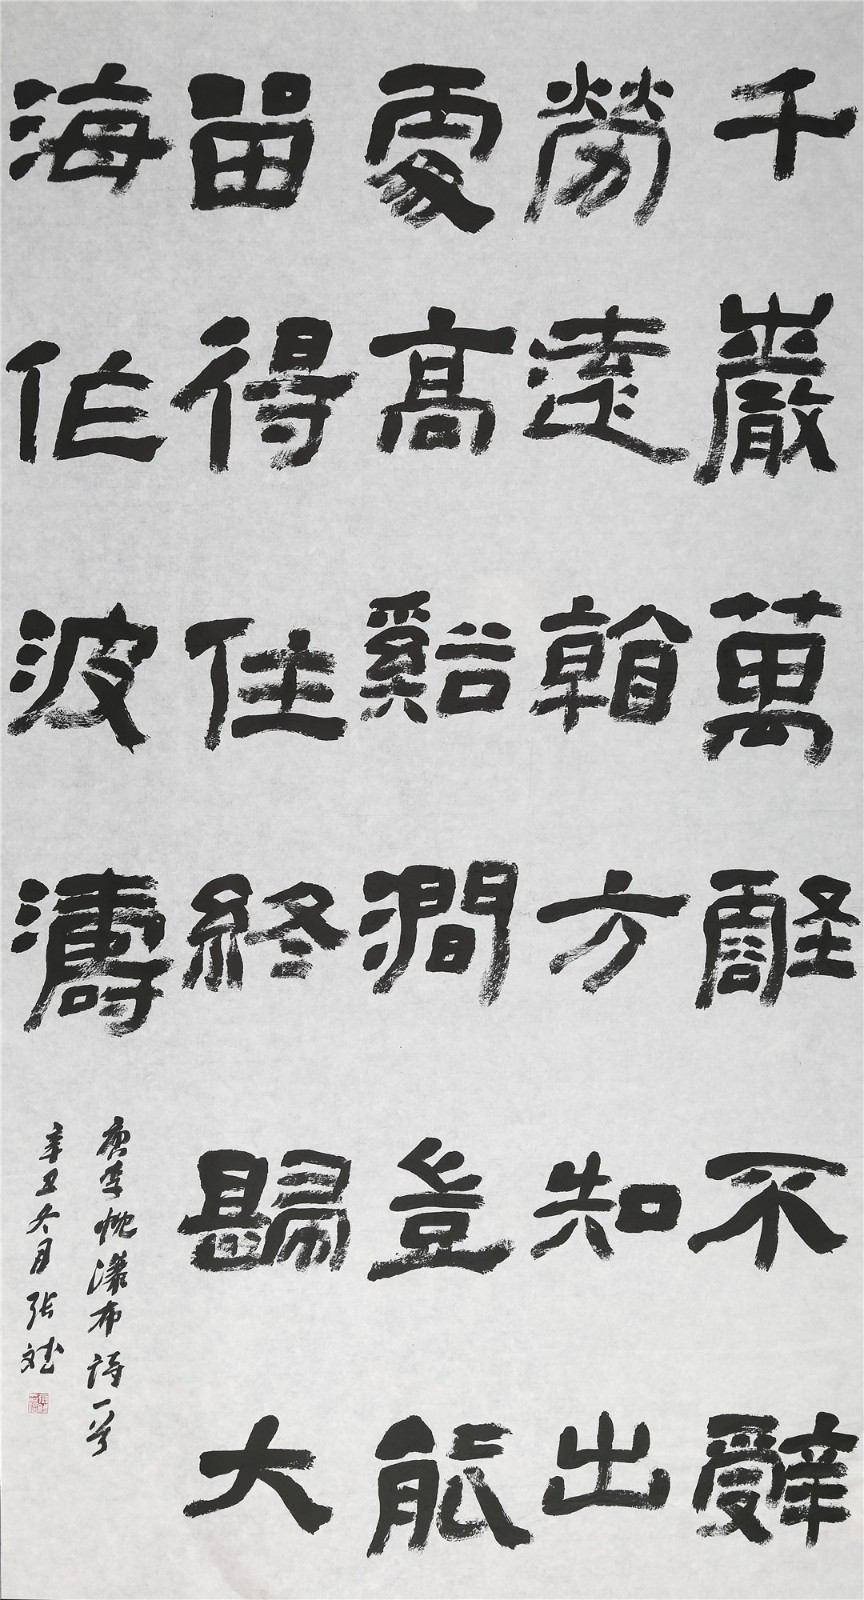 千巖萬壑不辭
勞遠看方知出
處高谿澗豈能
留得住終歸大
海作波濤
唐李忱瀑布詩一首
辛丑冬月張斌